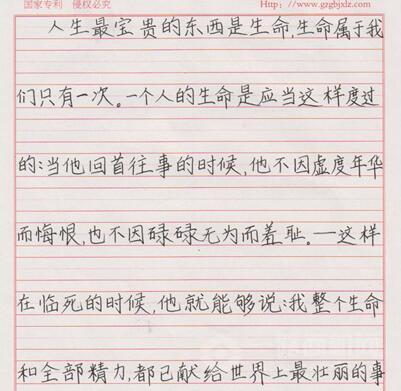 国家专利 侵权必究 Http://www.gzgbjxlz.com
人生最宝贵的东西是生命,生命属于我
们只有一次。一个人的生命是应当这样度过
的:当他回首往事的时候,他不因虚度年华
而悔恨,也不因碌碌无为而羞耻。一这样
在临死的时候,他就能够说:我整个生命
和全部精力,都已献给世界上最壮丽的事